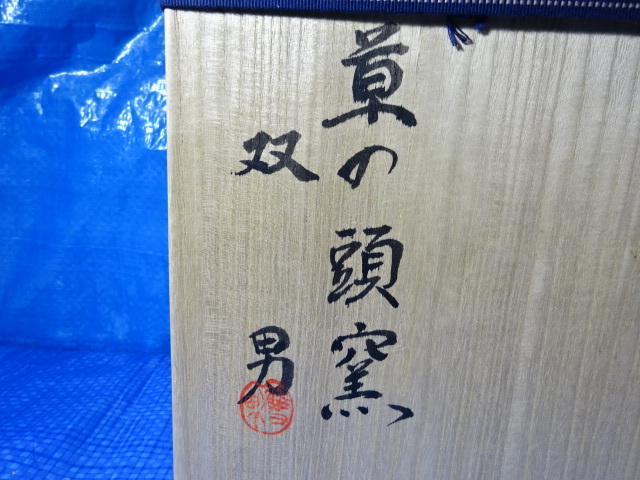 草の頭窯
双男